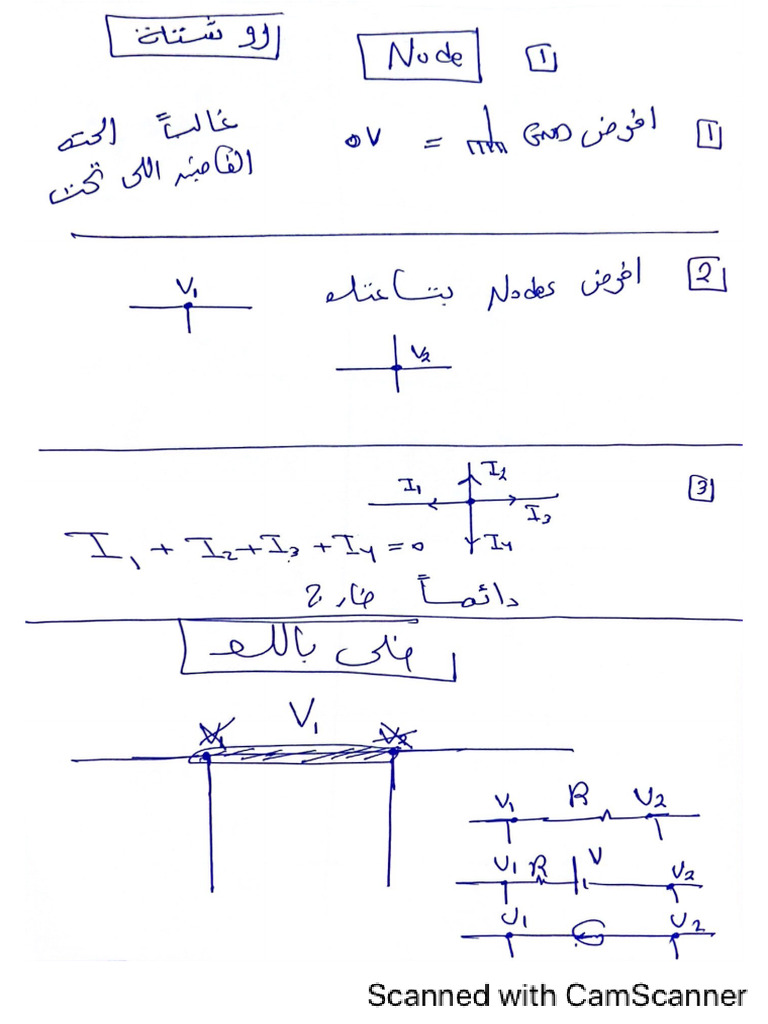 روشتة
Node 1
1 افرض GND = 0V غالباً الحته
الفاضيه اللى تحت
2 افرض Nodes بتاعتك
V1
V2
3
I1 I2 I3 I4
I1 + I2 + I3 + I4 = 0
دائماً خارج
خلى بالك
V1
V1 V2
V1 R V2
V1 R V V2
V1 V2
Scanned with CamScanner